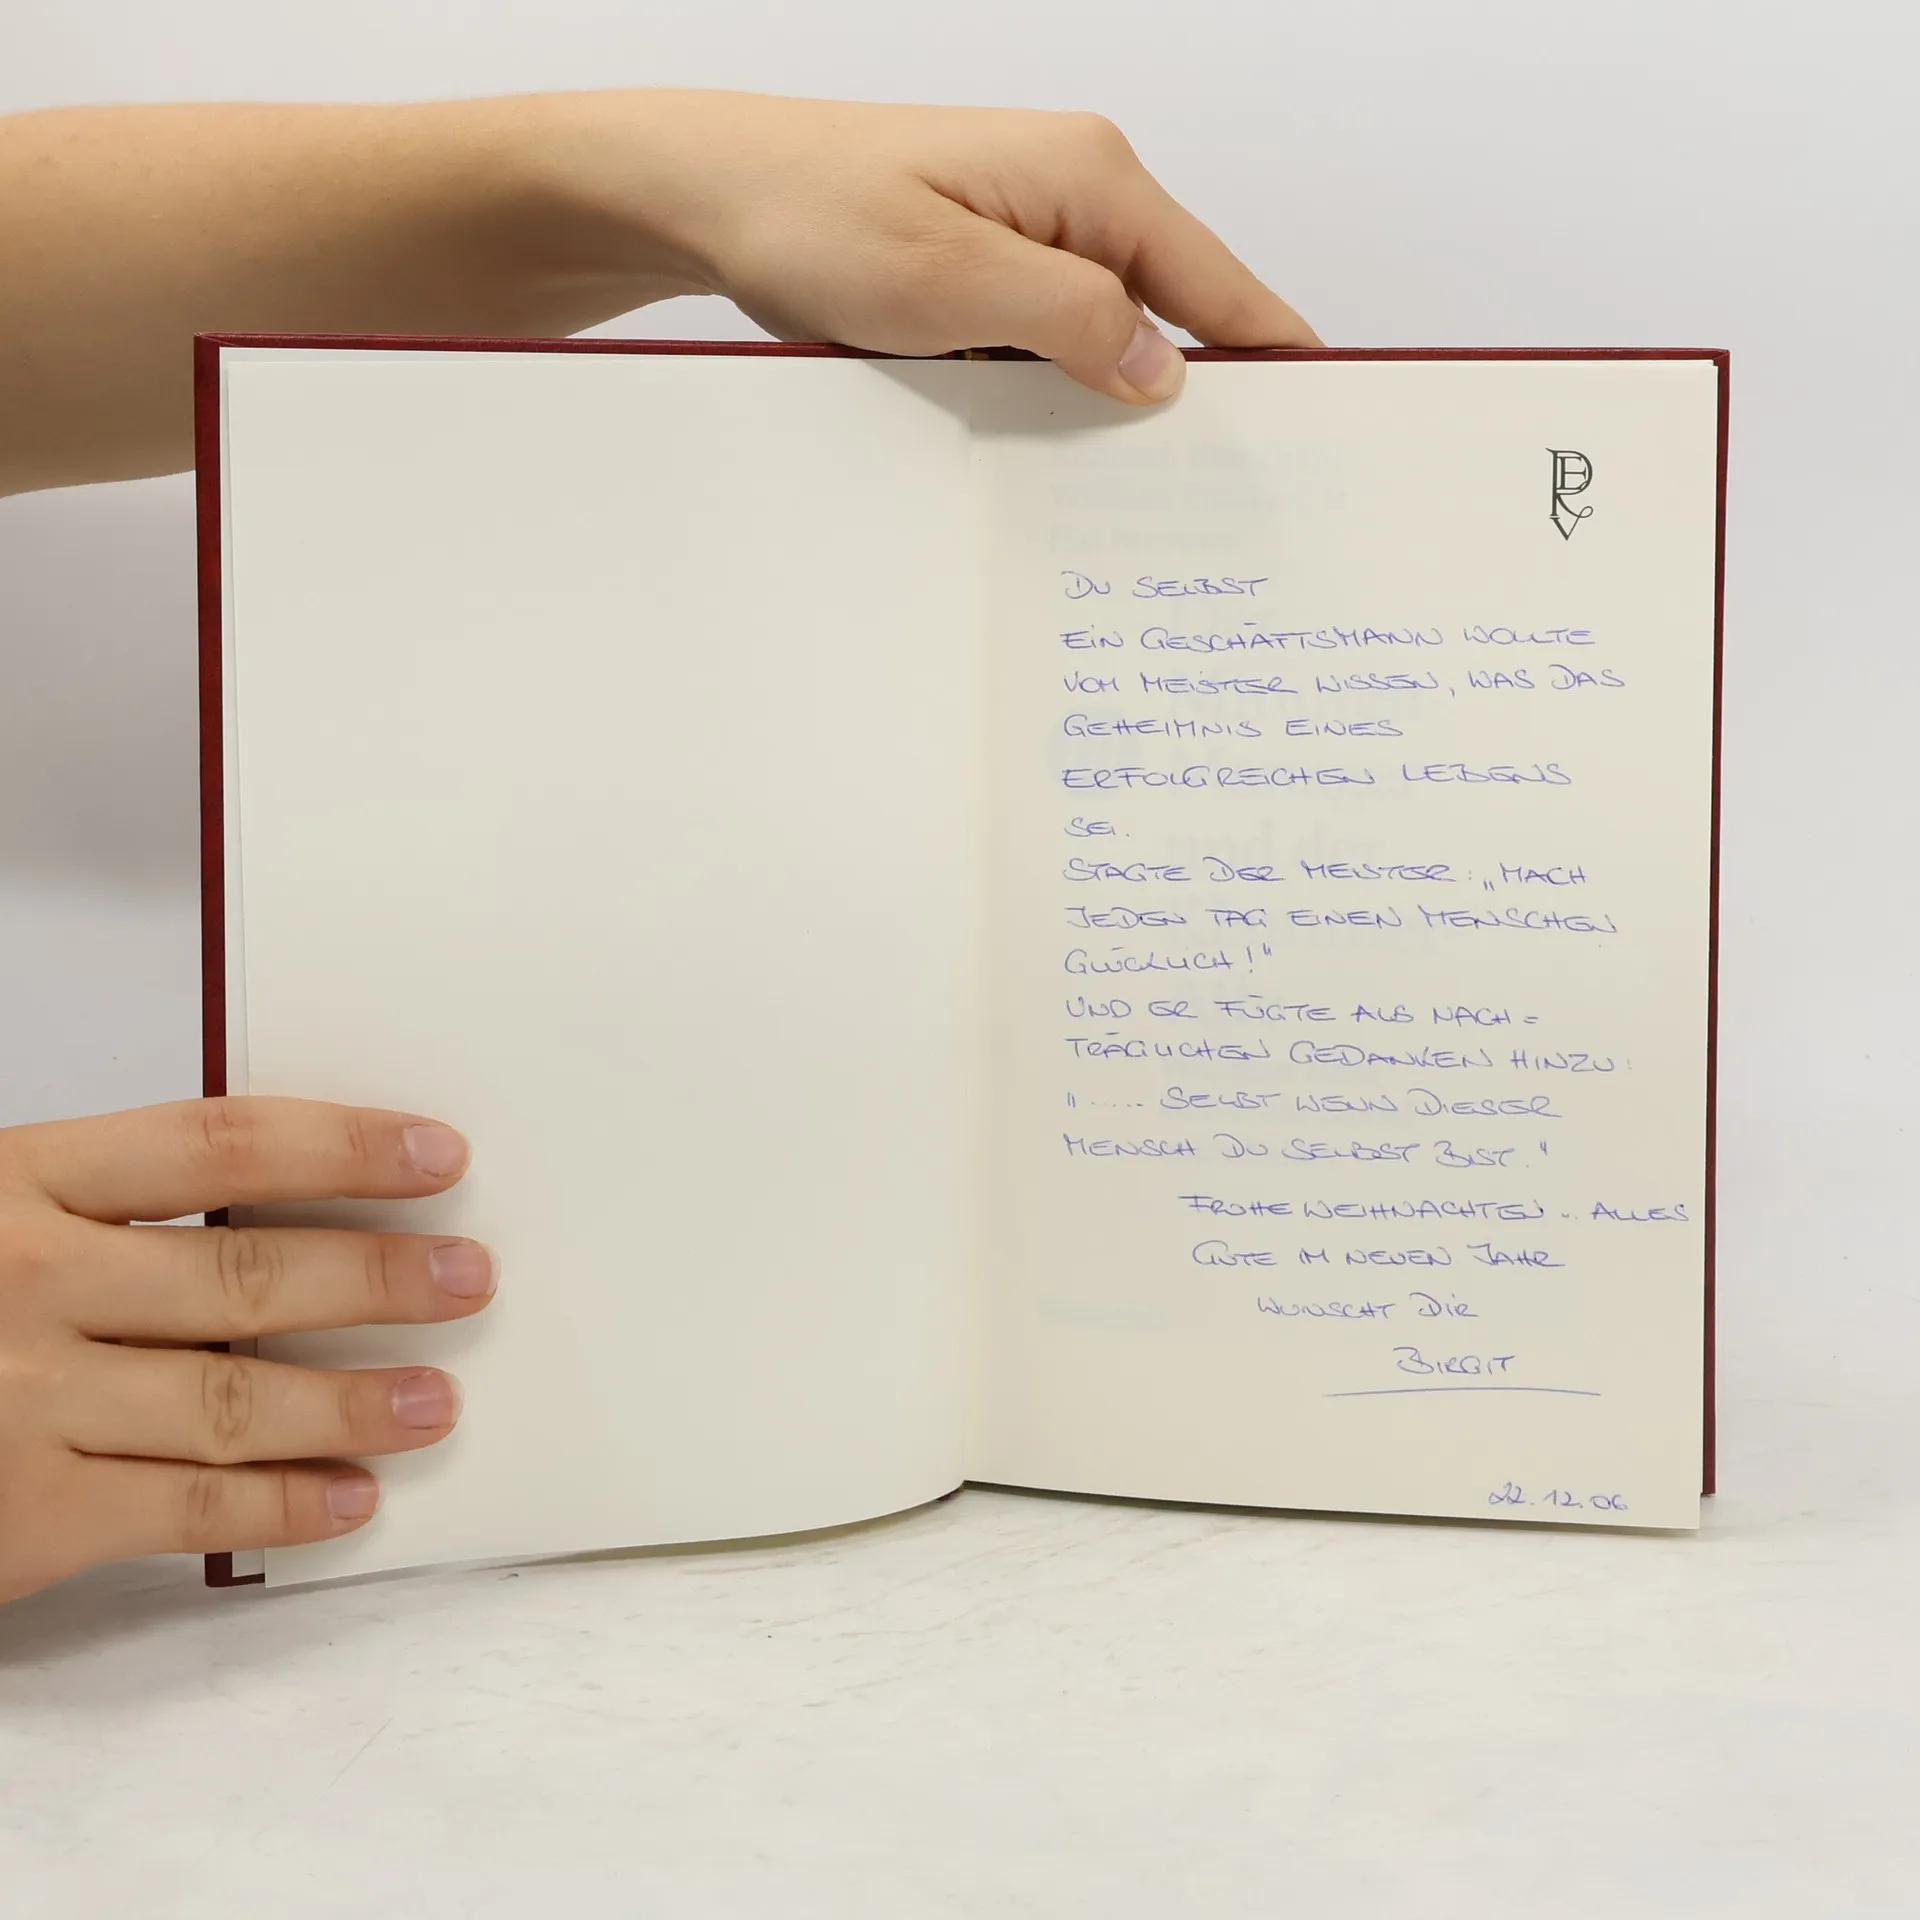 DU SELBST
EIN GESCHÄFTSMANN WOLLTE
VOM MEISTER WISSEN, WAS DAS
GEHEIMNIS EINES
ERFOLGREICHEN LEBENS
SEI.
STAGTE DER MEISTER: „MACH
JEDEN TAG EINEN MENSCHEN
GLÜCKLICH!"
UND ER FÜGTE ALS NACH=
TRÄGLICHEN GEDANKEN HINZU:
"..... SELBST WENN DIESER
MENSCH DU SELBST BIST."
FROHE WEIHNACHTEN u. ALLES
GUTE IM NEUEN JAHR
WÜNSCHT DIR
BIRGIT
22.12.06